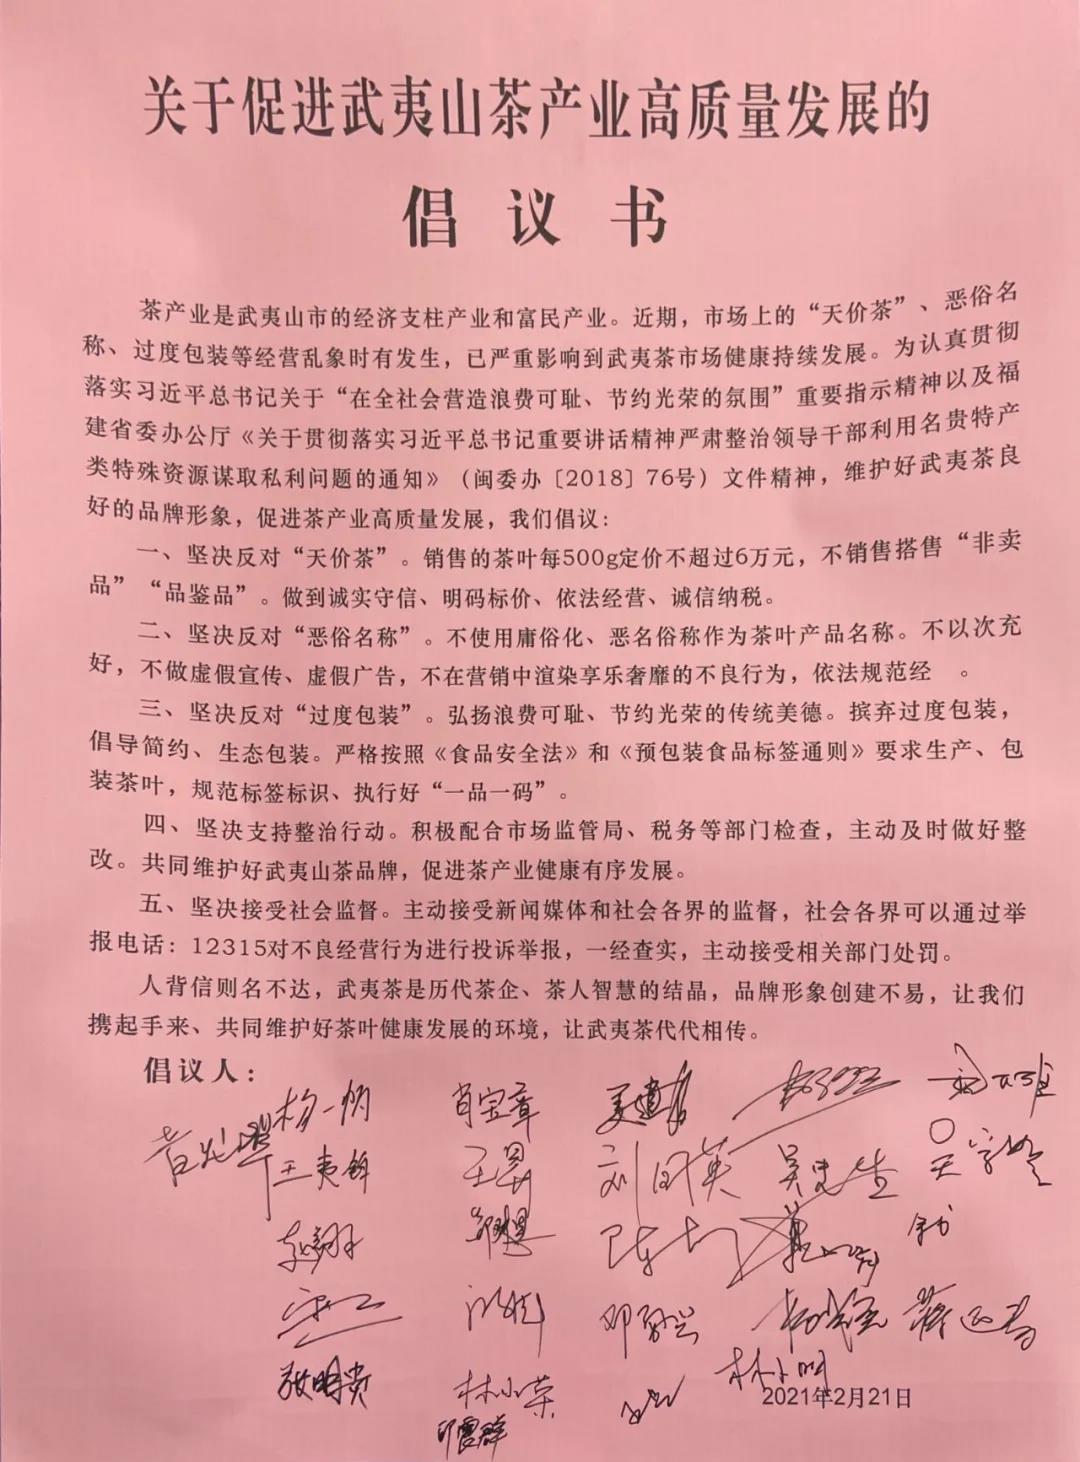 关于促进武夷山茶产业高质量发展的
倡议书
茶产业是武夷山市的经济支柱产业和富民产业。近期，市场上的“天价茶”、恶俗名
称、过度包装等经营乱象时有发生，已严重影响到武夷茶市场健康持续发展。为认真贯彻
落实习近平总书记关于“在全社会营造浪费可耻、节约光荣的氛围”重要指示精神以及福
建省委办公厅《关于贯彻落实习近平总书记重要讲话精神严肃整治领导干部利用名贵特产
类特殊资源谋取私利问题的通知》（闽委办〔2018〕76号）文件精神，维护好武夷茶良
好的品牌形象，促进茶产业高质量发展，我们倡议：
一、坚决反对“天价茶”。销售的茶叶每500g定价不超过6万元，不销售搭售“非卖
品”“品鉴品”。做到诚实守信、明码标价、依法经营、诚信纳税。
二、坚决反对“恶俗名称”。不使用庸俗化、恶名俗称作为茶叶产品名称。不以次充
好，不做虚假宣传、虚假广告，不在营销中渲染享乐奢靡的不良行为，依法规范经 。
三、坚决反对“过度包装”。弘扬浪费可耻、节约光荣的传统美德。摈弃过度包装，
倡导简约、生态包装。严格按照《食品安全法》和《预包装食品标签通则》要求生产、包
装茶叶，规范标签标识、执行好“一品一码”。
四、坚决支持整治行动。积极配合市场监管局、税务等部门检查，主动及时做好整
改。共同维护好武夷山茶品牌，促进茶产业健康有序发展。
五、坚决接受社会监督。主动接受新闻媒体和社会各界的监督，社会各界可以通过举
报电话：12315对不良经营行为进行投诉举报，一经查实，主动接受相关部门处罚。
人背信则名不达，武夷茶是历代茶企、茶人智慧的结晶，品牌形象创建不易，让我们
携起手来、共同维护好茶叶健康发展的环境，让武夷茶代代相传。
倡议人：
肖宝章
王夷 王昙 刘国英
林小荣
2021年2月21日